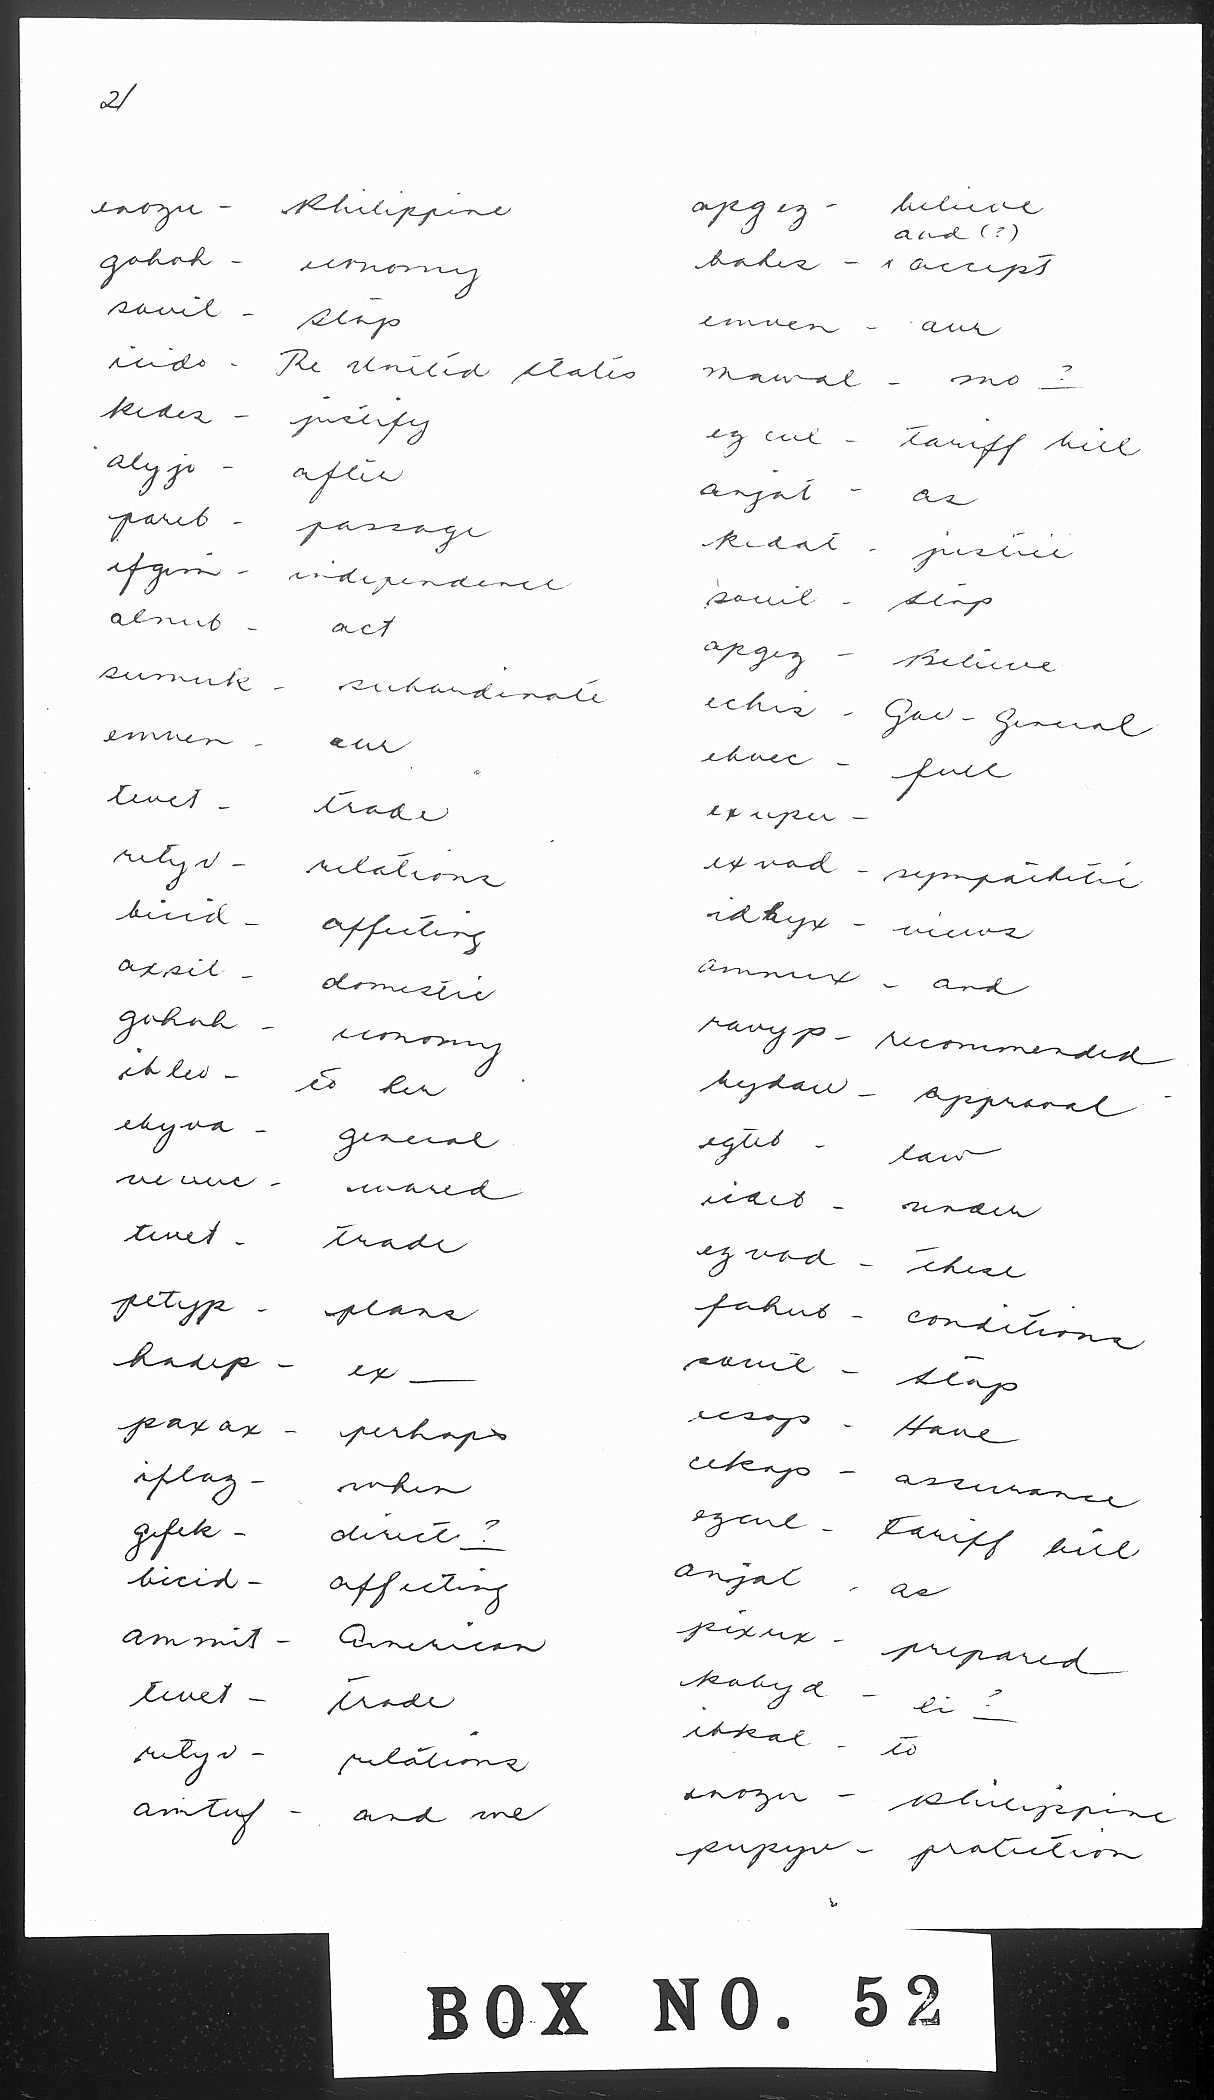 2/
enozu - Philippine
gohoh - economy
souil - stop
icido - The United States
kedez - justify
alyjo - after
pareb - passage
ifgim - independence
alnub - act
sumuk - subordinate
emven - our
tevet - trade
retyv - relations
bicid - affecting
axsil - domestic
gohoh - economy
ibleo - to her
ebyva - general
- trade
petyp - plans
hadep - ex __
paxax - perhaps
iflaz - when
gefek - direct ?
bicid - affecting
ammit - American
tevet - trade
retyv - relations
amtuf - and we
apgez - believe
and (?)
bakes - x accept
emven - our
mawal - mo ?
ezcul - tariff bill
anjat - as
kedat - justice
souil - stop
apgez - Believe
echis - Gov - General
ebvec - full
exupu -
exvod - sympathetic
idhyx - views
ammux - and
ravyp - recommended
bydaw - approval
egteb - law
icdeb - under
ezvod - these
fahub - conditions
souil - stop
ecsop - Have
cekap - assurance
ezcul - tariff bill
anjat - as
pixux - prepared
kobyd - li ?
ibkal - to
enozu - Philippine
pupyv - protection
BOX NO. 52